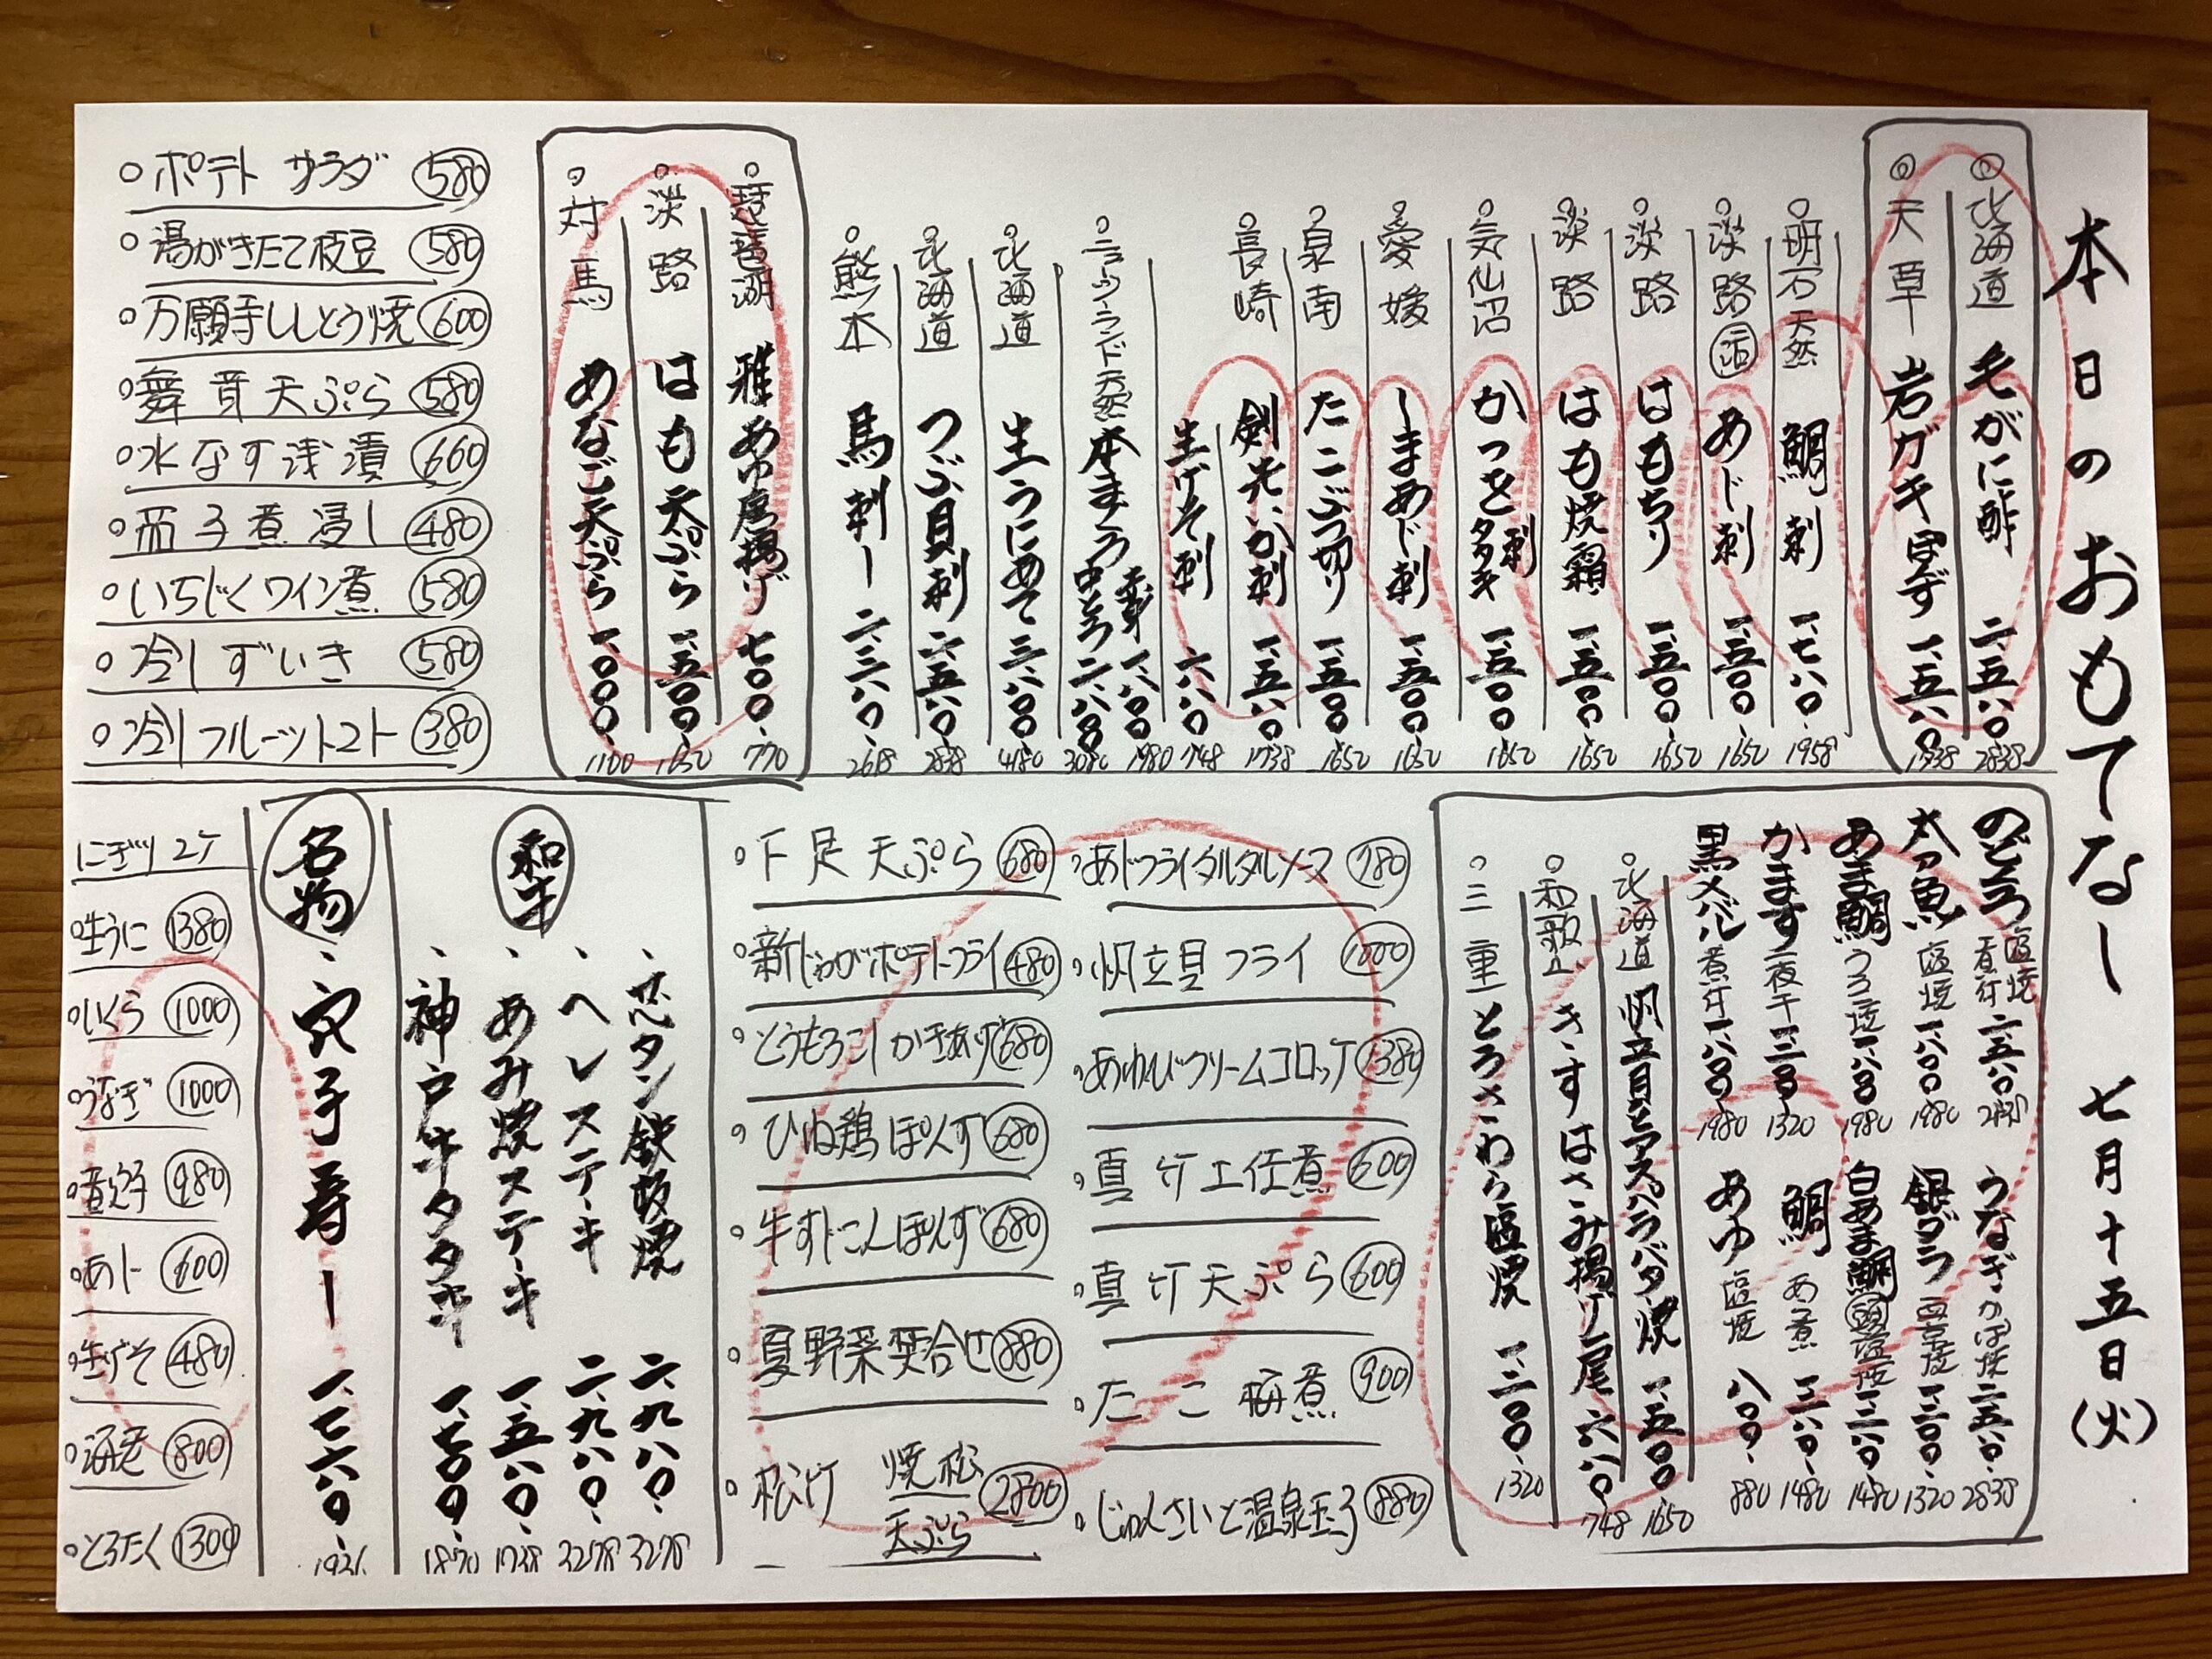 本日のおもてなし 七月十五日(火)
◎北海道 毛がに酢 二、五八〇 2838
◎天草 岩ガキぽんず 一、五八〇 1738
○明石天然 鯛刺 一、七八〇 1958
○淡路 活 あじ刺 一、五〇〇 1650
○淡路 はもちり 一、五〇〇 1650
○淡路 はも焼霜 一、五〇〇 1650
○気仙沼 かつを 刺 タタキ 一、五〇〇 1650
○愛媛 しまあじ刺 一、五〇〇 1650
○泉南 たこぶつ切り 一、五〇〇 1650
○長崎 剣先いか刺 一、五八〇 1738
生げそ刺 六八〇 748
○ニュージーランド天然 本まぐろ 赤身 一、八〇〇 1980
中とろ 二、八〇〇 3080
○北海道 生うにあて 三、八〇〇 4180
○北海道 つぶ貝刺 二、五八〇 2838
○熊本 馬刺し 二、三八〇 2618
○琵琶湖 稚あゆ唐揚げ 七〇〇 770
○淡路 はも天ぷら 一、五〇〇 1650
○対馬 あなご天ぷら 一、〇〇〇 1100
○ポテトサラダ 580
○湯がきたて枝豆 580
○万願寺ししとう焼 600
○舞茸天ぷら 580
○水なす浅漬 660
○茄子煮浸し 480
○いちじくワイン煮 580
○冷しずいき 580
○冷しフルーツトマト 380
のどぐろ 塩焼 煮付 二、五八〇 2838
太刀魚 塩焼 一、八〇〇 1980
あま鯛 うろこ焼 一、八〇〇 1980
かます 一夜干 一、二〇〇 1320
黒メバル 煮付 一、八〇〇 1980
うなぎ かば焼 二、五八〇 2838
銀ダラ 西京焼 一、二〇〇 1320
白あま鯛 頭 塩焼 一、三八〇 1480
鯛 あら煮 一、三八〇 1480
あゆ 塩焼 八〇〇 880
○北海道 帆立貝とアスパラバター焼 一、五〇〇 1650
○和歌山 きすはさみ揚げ一尾 六八〇 748
○三重 とろさわら塩焼 一、二〇〇 1320
○あじフライタルタルソース 780
○帆立貝フライ 1000
○あわびクリームコロッケ 1380
○真竹土佐煮 600
○真竹天ぷら 600
○たこ梅煮 900
○じゅんさいと温泉玉子 880
○下足天ぷら 680
○新じゃがポテトフライ 480
○とうもろこしかきあげ 680
○ひね鶏ぽんず 680
○牛すじこんぽんず 680
○夏野菜焚合せ 880
○松竹 焼松 天ぷら 2800
和牛
、芯タン鉄板焼 二、九八〇 3278
、ヘレステーキ 二、九八〇 3278
、あみ焼ステーキ 一、五八〇 1738
、神戸牛タタキ 一、七〇〇 1870
名物
、穴子寿し 一、七六〇
にぎり2ケ
○生うに 1380
○いくら 1000
○うなぎ 1000
○煮穴子 980
○あじ 600
○生げそ 480
○海老 800
○とろたく 1300